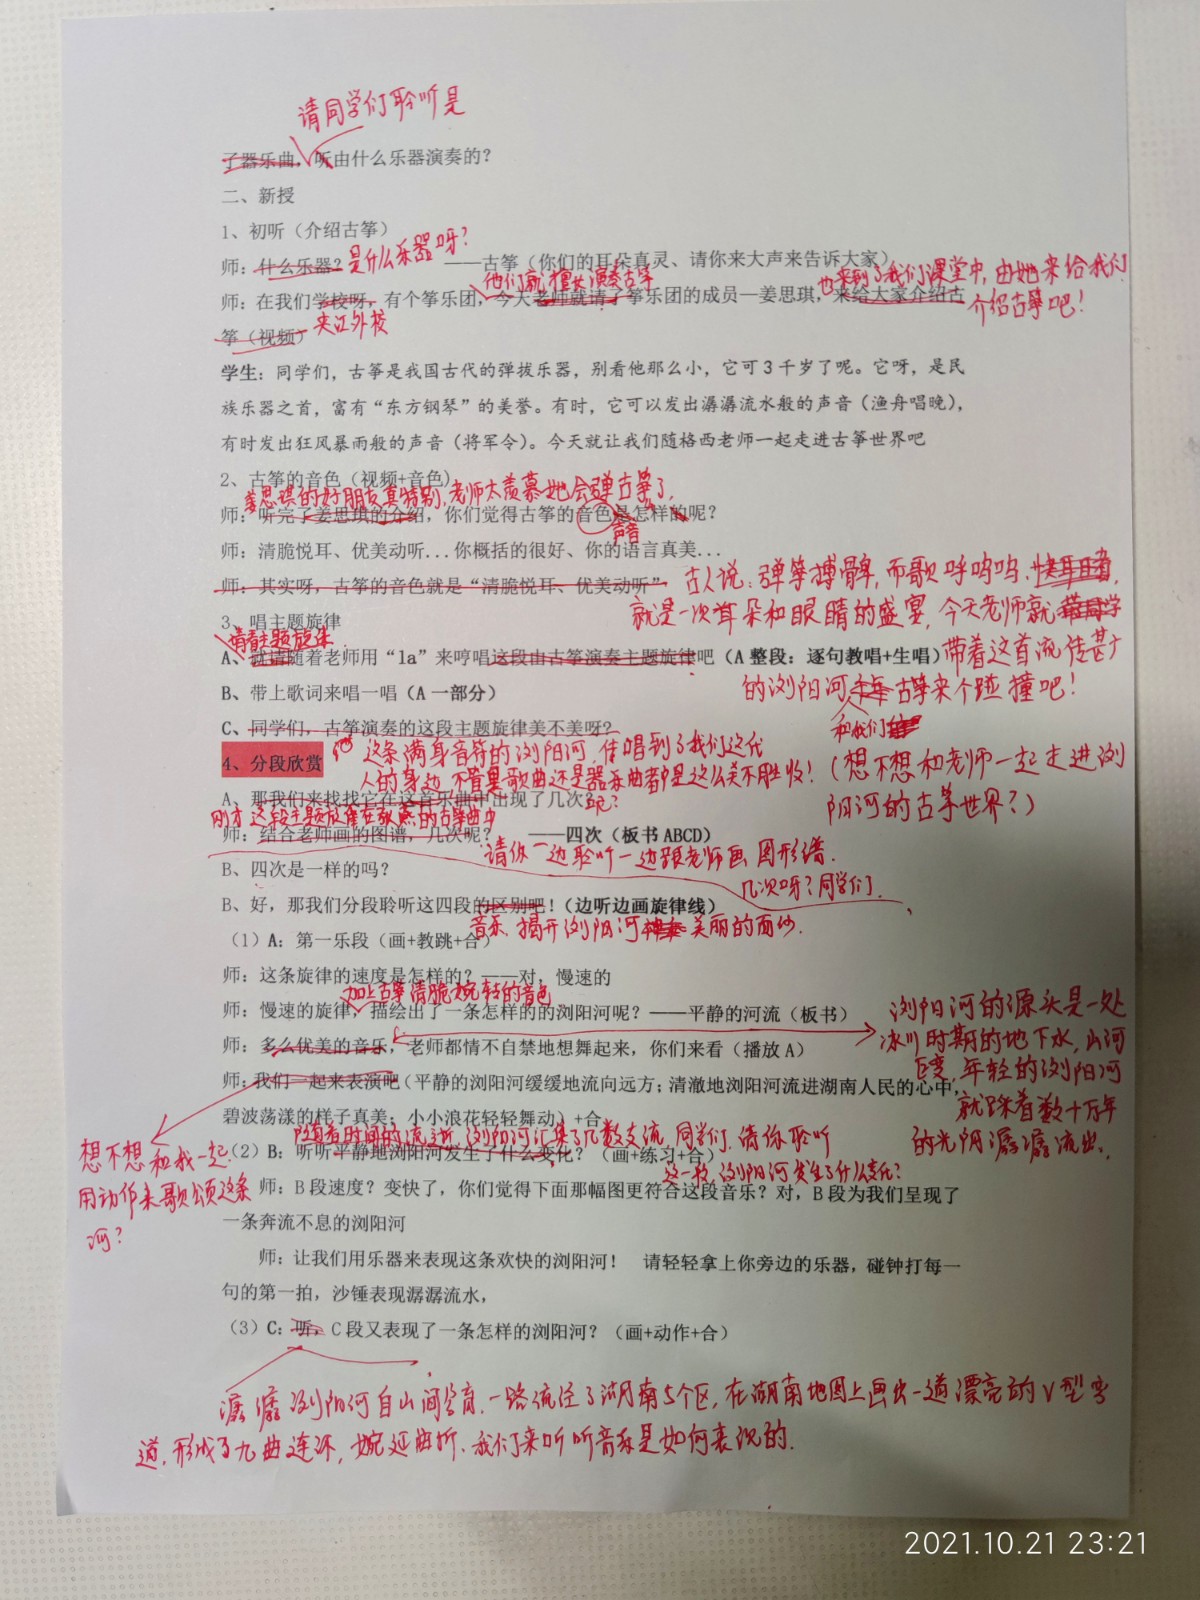 请同学们聆听是
子器乐曲，听由什么乐器演奏的？
二、新授
1、初听（介绍古筝）
师：什么乐器？是什么乐器呀？——古筝（你们的耳朵真灵、请你来大声来告诉大家）
他们就擅长演奏古筝
也来到了我们课堂中，由她来给我们
师：在我们学校呀，有个筝乐团，今天老师就请了筝乐团的成员—姜思琪，来给大家介绍古
介绍古筝吧！
筝（视频）夹江外校
学生：同学们，古筝是我国古代的弹拔乐器，别看他那么小，它可3千岁了呢。它呀，是民
族乐器之首，富有“东方钢琴”的美誉。有时，它可以发出潺潺流水般的声音（渔舟唱晚），
有时发出狂风暴雨般的声音（将军令）。今天就让我们随格西老师一起走进古筝世界吧
2、古筝的音色（视频+音色）
姜思琪的好朋友真特别，老师太羡慕她会弹古筝了，
师：听完了姜思琪的介绍，你们觉得古筝的音色是怎样的呢？
声音
师：清脆悦耳、优美动听...你概括的很好、你的语言真美...
师：其实呀，古筝的音色就是“清脆悦耳、优美动听”
古人说：弹筝搏髀，而歌呼呜呜，
就是一次耳朵和眼睛的盛宴，今天老师就带同学
3、唱主题旋律
请看主题旋律
A、就请随着老师用“la”来哼唱这段由古筝演奏主题旋律吧（A整段：逐句教唱+生唱）
带着这首流传甚广
B、带上歌词来唱一唱（A一部分）
的浏阳河 古筝来个碰撞吧！
和我们
C、同学们，古筝演奏的这段主题旋律美不美呀？
4、分段欣赏
这条满身音符的浏阳河，传唱到了我们这代
人的身边，不管是歌曲还是器乐曲都是这么美不胜收！
（想不想和老师一起走进浏
阳河的古筝世界？）
A、那我们来找找它在这首乐曲中出现了几次呢？
刚才这段主题旋律在欣赏的古筝曲中
师：结合老师画的图谱，几次呢？ ——四次（板书ABCD）
请你一边聆听一边跟老师画图形谱.
B、四次是一样的吗？
几次呀？同学们.
B、好，那我们分段聆听这四段的区别吧！（边听边画旋律线）
音乐，揭开浏阳河 美丽的面纱.
（1）A：第一乐段（画+教跳+合）
师：这条旋律的速度是怎样的？——对，慢速的
加上古筝清脆婉转的音色
师：慢速的旋律，描绘出了一条怎样的的浏阳河呢？——平静的河流（板书）
浏阳河的源头是一处
冰川时期的地下水，山河
巨变，年轻的浏阳河
就踩着数十万年
的光阴潺潺流出.
师：多么优美的音乐，老师都情不自禁地想舞起来，你们来看（播放A）
师：我们一起来表演吧（平静的浏阳河缓缓地流向远方；清澈地浏阳河流进湖南人民的心中，
碧波荡漾的样子真美；小小浪花轻轻舞动）+合
想不想和我一起
用动作来歌颂这条
河？
随着时间的流逝，浏阳河汇集了无数支流，同学们，请你聆听
（2）B：听听平静地浏阳河发生了什么变化？（画+练习+合）
这一段，浏阳河发生了什么变化？
师：B段速度？变快了，你们觉得下面那幅图更符合这段音乐？对，B段为我们呈现了
一条奔流不息的浏阳河
师：让我们用乐器来表现这条欢快的浏阳河！ 请轻轻拿上你旁边的乐器，碰钟打每一
句的第一拍，沙锤表现潺潺流水，
（3）C：听，C段又表现了一条怎样的浏阳河？（画+动作+合）
潺潺浏阳河自山间孕育，一路流经了湖南5个区，在湖南地图上画出一道漂亮的V型弯
道，形成了九曲连环，婉延曲折，我们来听听音乐是如何表现的.
2021.10.21 23:21